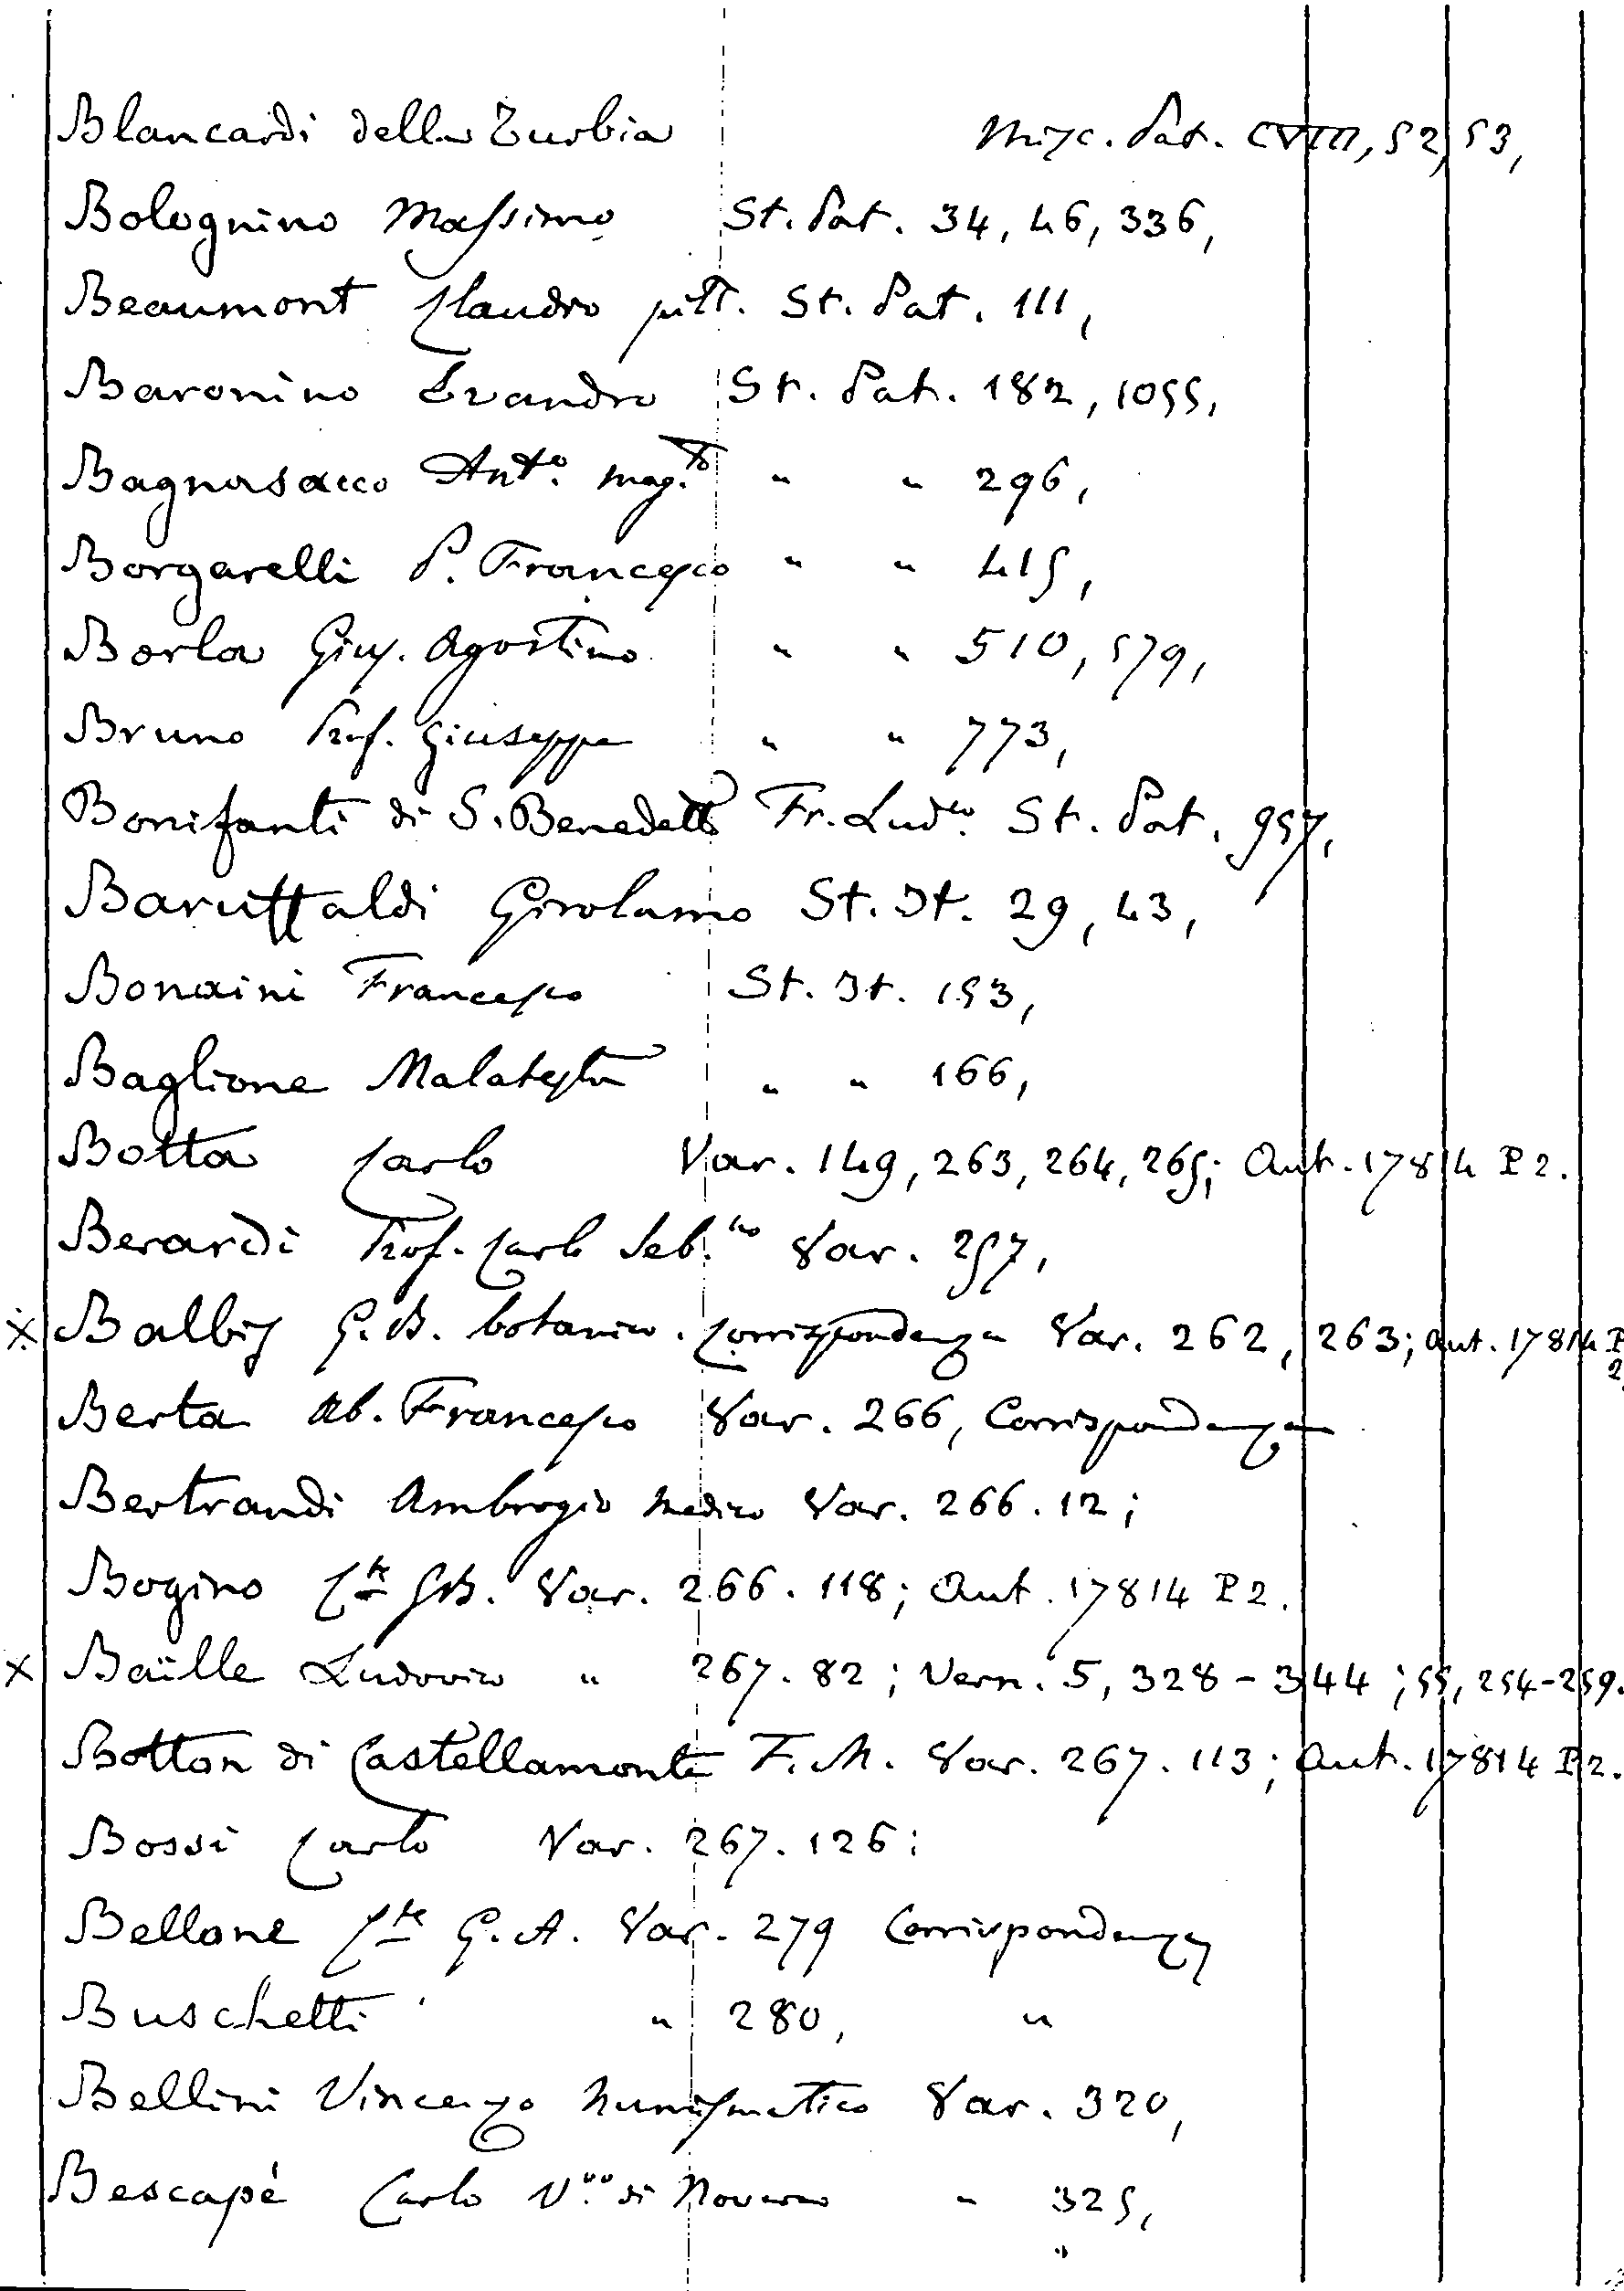 Blancardi della Turbia Misc. Pat. CVIII, 52, 53,
Bolognino Massimo St. Pat. 34, 46, 336,
Beaumont Claudio pitt. St. Pat. 111,
Baronino Evandro St. Pat. 182, 1055,
Bagnasacco Ant.o mag.to " " 296,
Borgarelli P. Francesco " " 415,
Borla Gius. Agostino " " 510, 579,
Bruno Prof. Giuseppe " " 773,
Bonifanti di S. Benedetto Fr. Lud.co St. Pat. 957,
Baruffaldi Girolamo St. It. 29, 43,
Bonaini Francesco St. It. 153,
Baglione Malatesta " " 166,
Botta Carlo Var. 149, 263, 264, 265; Aut. 17814 P2.
Berardi Prof. Carlo Seb.no Var. 257,
× Balbis G.B. botanico. Corrispondenza Var. 262, 263; Aut. 17814 P2
Berta Ab. Francesco Var. 266, Corrispondenza
Bertrandi Ambrogio medico Var. 266.12;
Bogino C.te GB. Var. 266.118; Aut. 17814 P2.
× Baïlle Ludovico " 267.82; Vern. 5, 328-344; 55, 254-259.
Botton di Castellamonte F.M. Var. 267.113; Aut. 17814 P2.
Bossi Carlo Var. 267.126;
Bellone C.te G.A. Var. 279 Corrispondenza
Buschetti " 280, "
Bellini Vincenzo numismatico Var. 320,
Bescapé Carlo V.vo di Novara " 325,
"